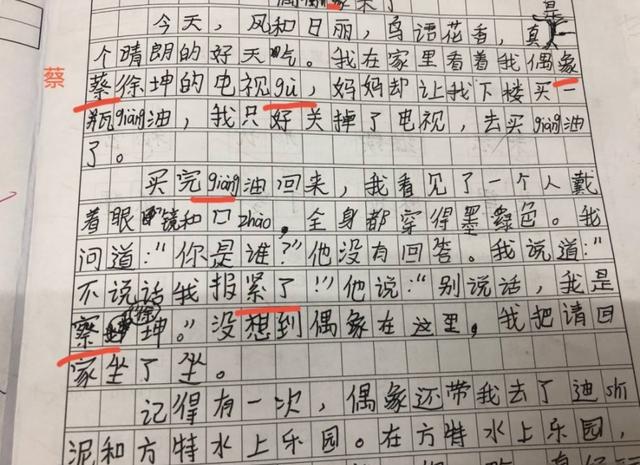 来了
今天，风和日丽，鸟语花香，真是
个晴朗的好天气。我在家里看着我偶象
蔡
蔡徐坤的电视gù，妈妈却让我下楼买一
瓶giàng油，我只好关掉了电视，去买giàng油
了。
买完giàng油回来，我看见了一个人戴
着眼镜和口zhào。全身都穿得墨绿色。我
问道：“你是谁？”他没有回答。我说道：“
不说话我报紧了！”他说：“别说话，我是
察徐坤。”没想到偶象在这里，我把请回
家坐了坐。
记得有一次，偶象还带我去了迪shì
泥和方特水上乐园。在方特水上乐园，